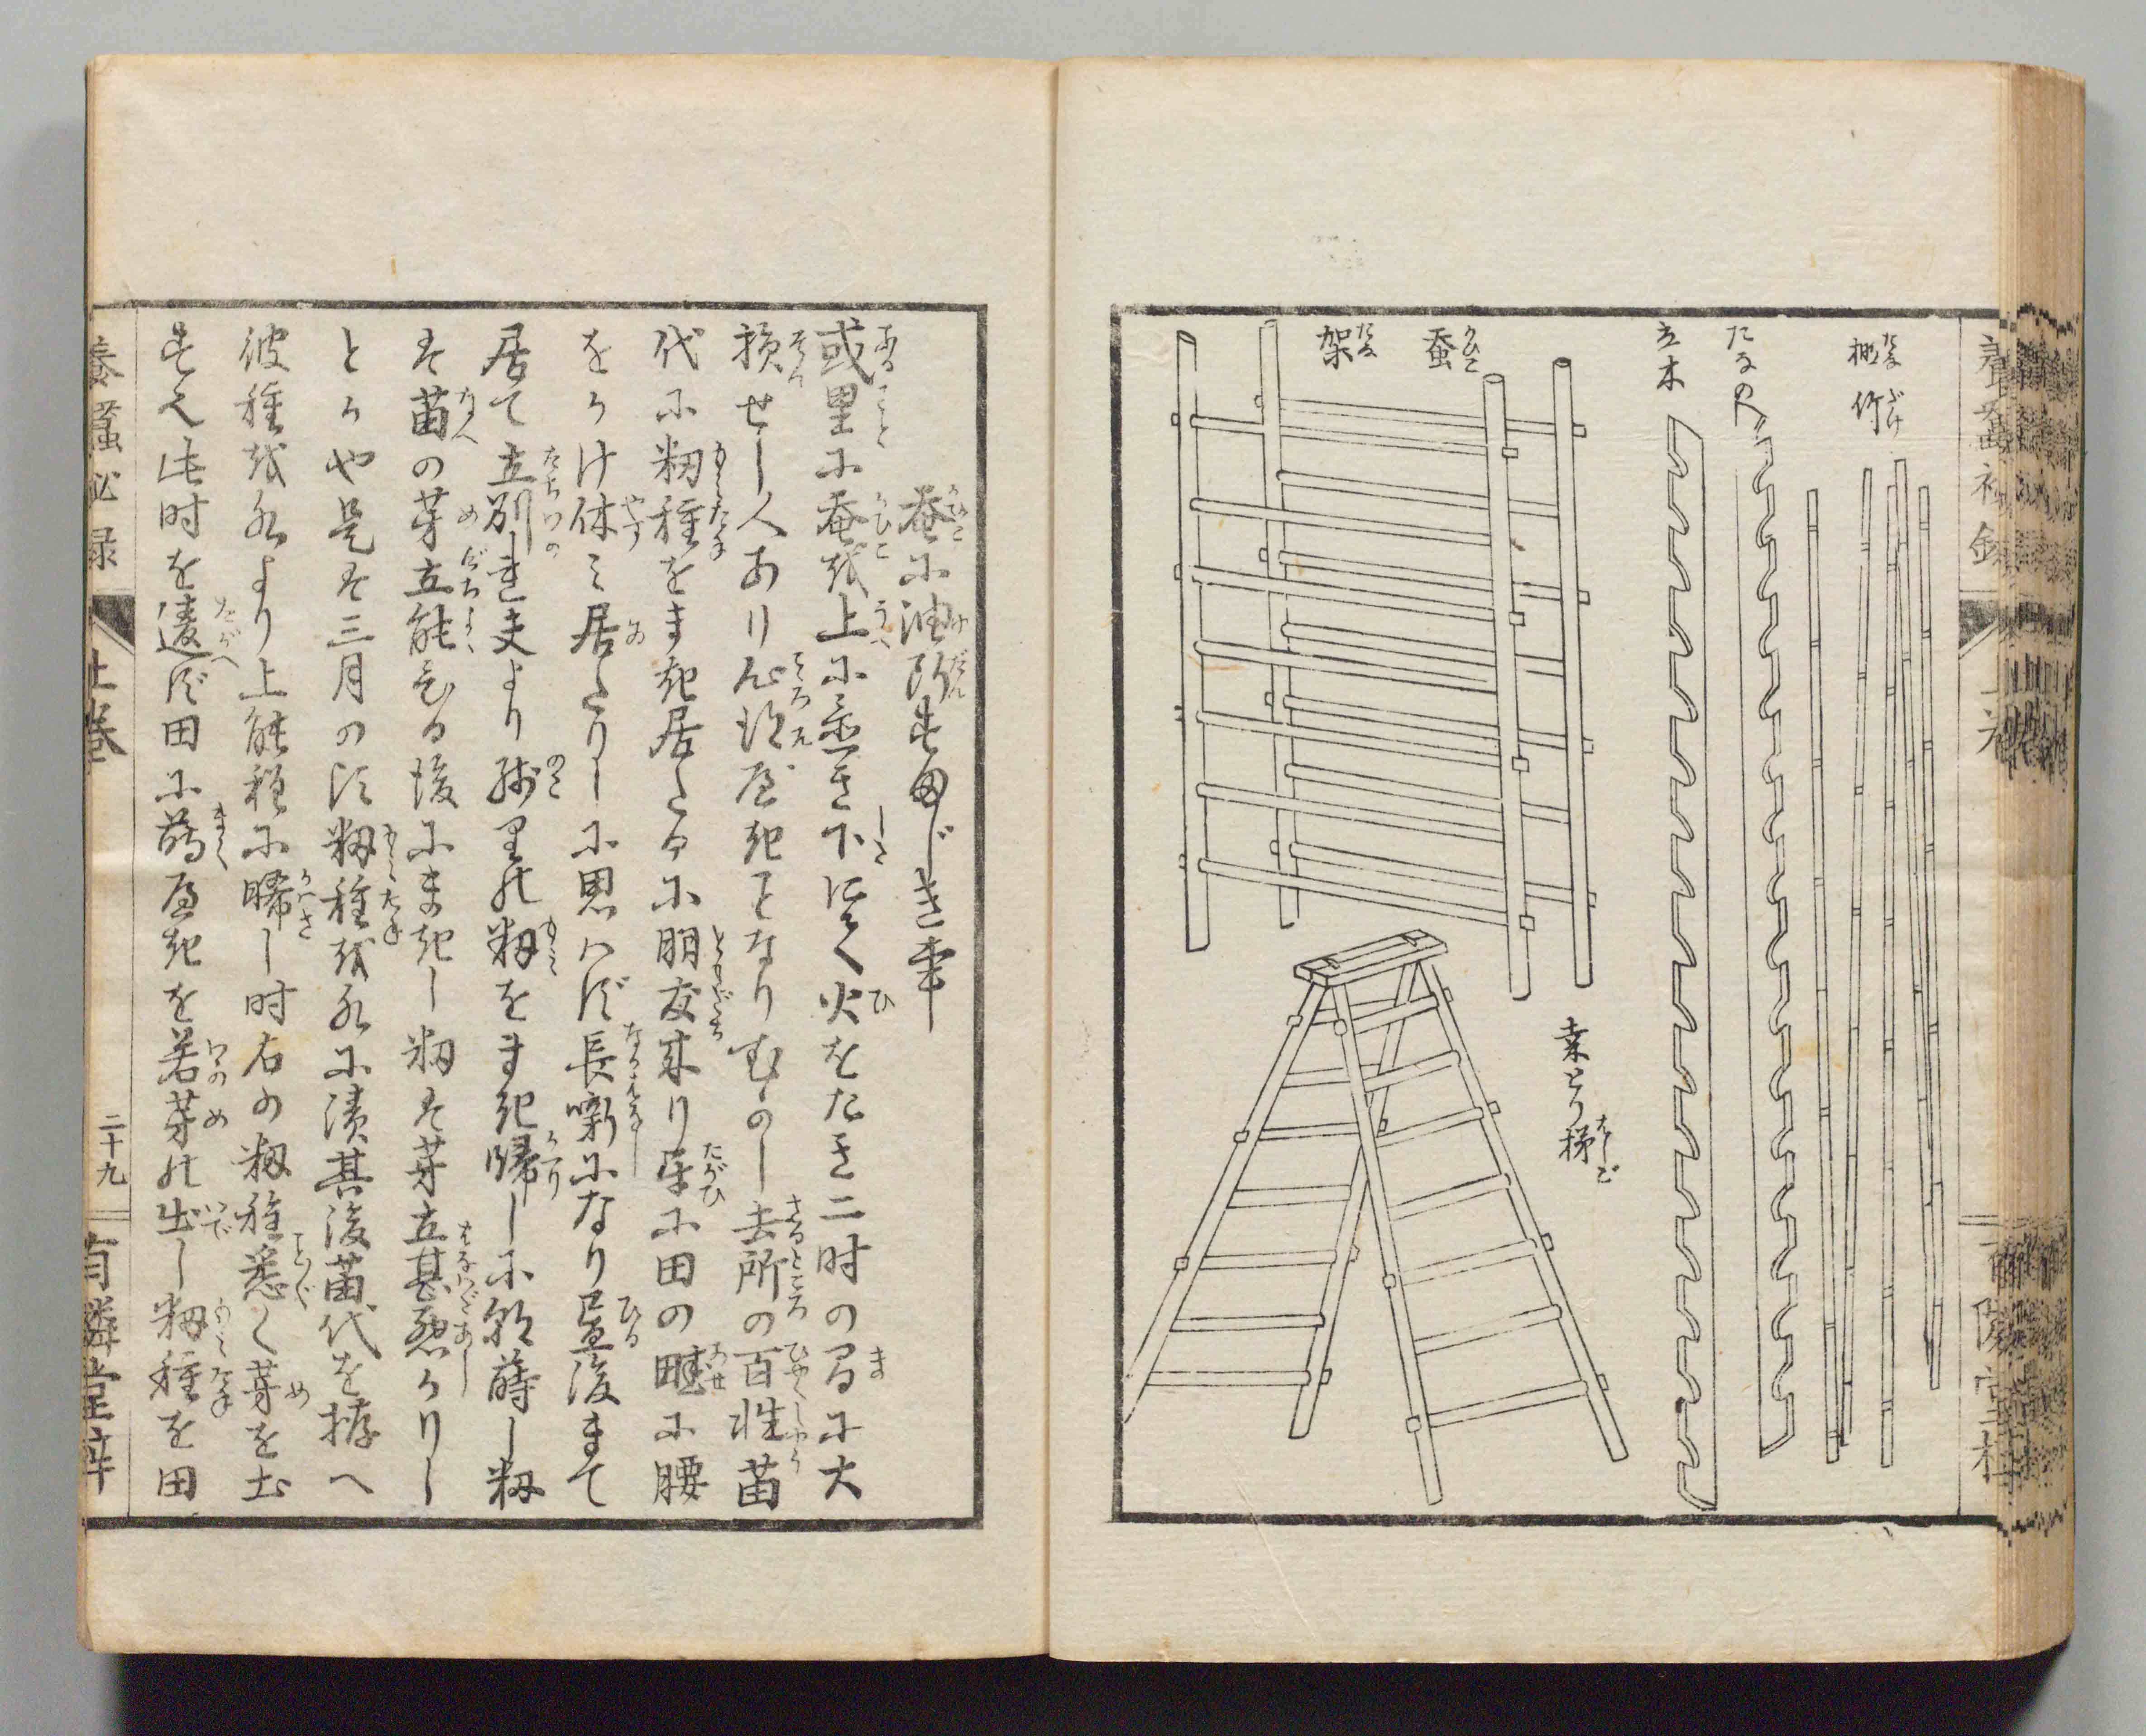 棚竹
たなの
立木
蚕
架
桑とり梯
蚕に油断すまじき事
或里に蚕を上に置き下にて火をたき二时の間に大
損せし人あり心得べきことなりむかし去所の百姓苗
代に籾種をまき居たるに朋友来り互に田の畦に腰
をかけ休み居たりしに思はず長噺になり昼後まて
居て立別れ夫より残りの籾をまき帰しに朝蒔し籾
は苗の芽立能後にまきし籾は芽立甚悪かりし
とかや是は三月の比籾種を水に漬其後苗代を拵へ
彼種を水より上能程に晞し时右の籾種悉く芽を出
すべし此时を違ず田に蒔べきを若芽の出し籾種を田
養蚕秘録
上巻
二十九
有隣堂梓